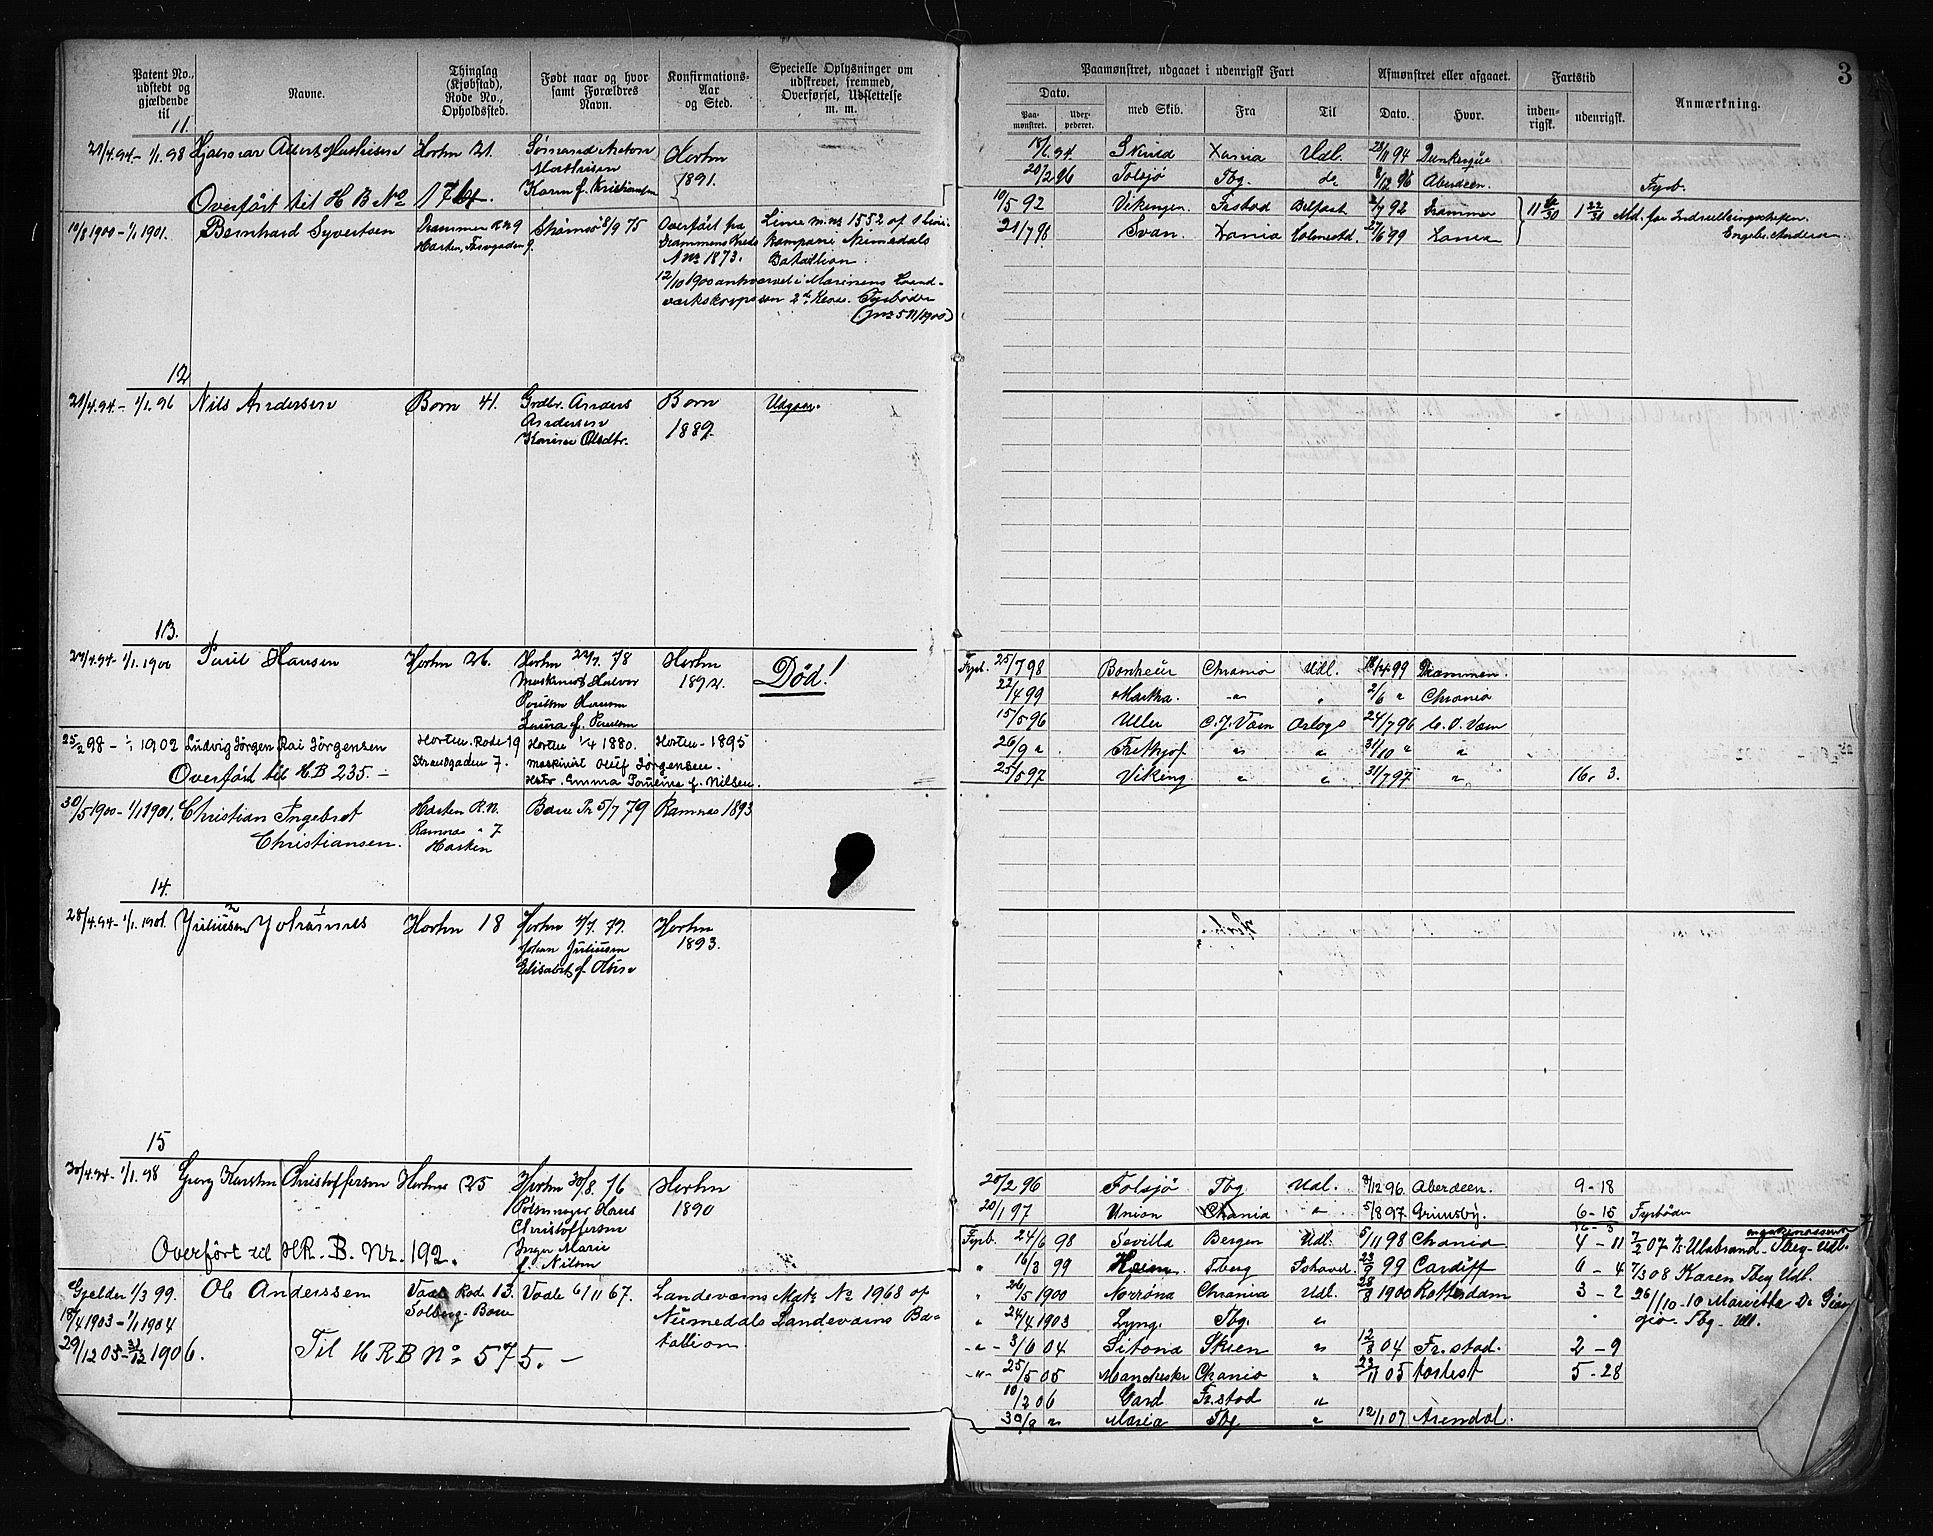 Patent No., udstedt og gjældende til
Navne.
Thinglag (Kjøbstad), Rode No., Opholdssted.
Født naar og hvor samt Forældres Navn.
Konfirmations-Aar og Sted.
Specielle Oplysninger om udskrevet, fremmed, Overførsel, Udslettelse m. m.
Paamønstret, udgaaet i udenrigsk Fart
Dato.
Paa-mønstret.
med Skib.
Fra
Til
Afmønstret eller afgaaet.
Dato.
Hvor.
Fartstid
inden-rigsk.
udenrigsk.
Anmærkning.
3
11.
21/4.94 - 1/1.98 Hjalmar Albert Mathisen Horten 21. Sømand Anton
Mathisen
Karen f. Kristiansen
Horten
1891.
Overført til H B No 176.
18/6.94 Skuld Xania Udl. 28/11 94 Dunkerque
20/2 96 Folsjø Tbg. do 8/12 96 Aberdeen.
Fyrb.
10/8 1900 - 1/1 1901. Bernhard Syvertsen Drammen R. No 9
Horten, Torvgaden 9.
8/9 75
Overført fra
Drammens Krets
A No 1873.
Linie m. no 1552 af 1 Linie
Kompani Numedals
Bataillon.
12/10 1900 i Marinens Haand-
værkskorps som 2d. Klasse. Fyrbøder
10/5 92 Vikingen. Frstad Belfast 2/7 92 Drammen
21/7 98 Svan. Xania Holmestd. 27/6 99 Xania
Md. for
12
21/4.94 - 1/1.96 Nils Andersen Born 41. Grdbr. Anders
Andersen
Karine Olsdtr.
Born
1889.
Udgaar.
13.
27/4.94 - 1/1.1900 Paul Hansen Horten 26. Horten 22/7. 78
Maskinist Halvor
Paulsen Hansen
Laura f. Paulsen
Horten
1892.
Død!
Fyrb. 25/7 98 Bonheur Chrania Udl. 18/12 99 Drammen.
22/4 99 Martha. -"- " 2/6 " Chrania
15/5 96 Uller C. J. Værn Orlogs 24/7 96 C. J. Værn
26/9 " Frithjof " " 31/10 " "
25/5 97 Viking " " 31/7 97 " 16, 3.
25/2 98 - 1/1 1902 Ludvig Jørgen Kai Jørgensen Horten. Rode 19
Strandgaden 7.
Horten 1/4 1880.
Maskinist Oluf Jørgensen.
Hstr. Emma Pauline f. Nilsen.
Horten - 1895
Overført til H.B 235. -
30/5 1900 - 1/1 1901. Christian Ingebret
Christiansen.
Horten R. N.
Ramnæs " 7
Horten
Borre Pr 5/7 79 Ramnæs 1893
14.
28/4.94 - 1/1.1901. Juliusen Johannes Horten 18 Horten 4/7. 79.
Johan Juliusen
Elisabet f. Olsen
Horten
1893.
15
30/4.94 - 1/1.98 Georg Karsten Christoffersen Hortens 25 Horten 30/8. 76
Pølsemager Hans
Christoffersen
Inger Marie
f. Nilsen
Horten
1890
Overført til HR. B. Nr. 192.
20/2 96 Folsjø Tbg Udl. 8/12 96. Aberdeen. 9 - 18
20/1 97 Union Chrania " 5/8 97 Grimsby. 6 - 15 Fyrbøder
Gjelder 1/3 99.
18/4 1903 - 1/1 1904
29/12 05 - 31/12 1906.
Ole Anderssen Vaale Rode 13.
Solberg - Borre
Vaale 6/11 67. Landeværns Mgts No 1968 af
Numedals Landeværns Ba-
tallion.
Til H R B No 575. -
Fyrb. 24/6 98 Sevilla Bergen Udl. 5/11 98 Chrania. 4 - 11 7/2 07 Ulabrand - Tbg - Udl.
" 16/3 99 Heim. Tberg Ishavet 23/9 99 Cardiff 6 - 4 7/3 08 Karen Tbg Udl.
" 26/5 1900 Norrøna Chrania Udl. 28/8 1900 Rotterdam 3 - 2 26/11 10 - 10 Marietta Di Gior
gio. Tbg. Udl.
" 24/4 1903 Lyng. Tbg. "
-"- 3/6 04 Sitona Skien " 12/8 04 Fr.stad. 2 - 9
-"- 25/5 05 Manchester Chrania " 23/11 05 5 - 28
10/2 06 Gard Fr.stad "
30/8 " Maria Tbg. " 12/1 07 Arendal.